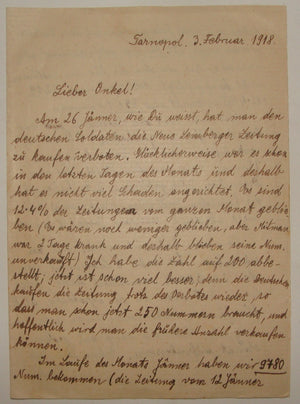 Tarnopol, 3. Februar 1918.
Lieber Onkel!
Am 26 Jänner, wie Du weisst, hat man den
deutschen Soldaten die Neue Lemberger Zeitung
zu kaufen verboten. Glücklicherweise war es schon
in den letzten Tagen des Monats und deshalb
hat es nicht viel Schaden angerichtet. Es sind
12·4% der Zeitungen vom ganzen Monat geblie
ben (Es wären noch weniger geblieben, aber
war 2 Tage krank und deshalb blieben seine Num.
unverkauft) Ich habe die Zahl auf 200 abbe-
stellt; jetzt ist schon viel besser, denn die Deutschen
kaufen die Zeitung trotz des Verbotes wieder, so
dass man schon jetzt 250 Nummern braucht, und
hoffentlich wird man die frühere Anzahl verkaufen
können.
Im Laufe des Monats Jänner haben wir 9780
Num. bekommen (die Zeitung vom 12 Jänner